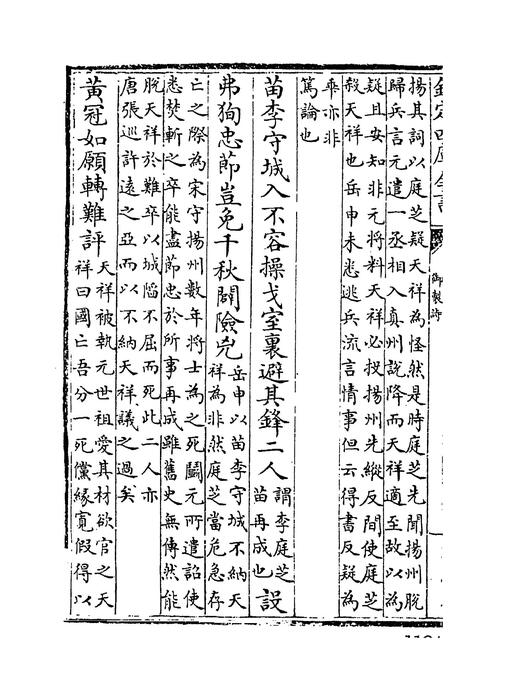 御製詩
揚其詞以庭芝疑天祥為怪然是時庭芝先聞揚州脫
歸兵言元遣一丞相入真州說降而天祥適至故以為
疑且安知非元將料天祥必投揚州先縱反間使庭芝
殺天祥也岳申未悉逃兵流言情事但云得書反疑為
乖亦非
篤論也
苗李守城入不容操戈室裏避其鋒二人謂李庭芝苗再成也設
弗狥忠節豈免千秋鬭險兇岳申以苗李守城不納天祥為非然庭芝當危急存
亡之際為宋守揚州數年將士為之死鬭元所遣詔使
悉焚斬之卒能盡節忠於所事再成雖舊史無傳然能
脫天祥於難卒以城陷不屈而死此二人亦
唐張巡許遠之亞而以不納天祥議之過矣
黃冠如願轉難評天祥被執元世祖愛其材欲官之天祥曰國亡吾分一死儻緣寬假得以